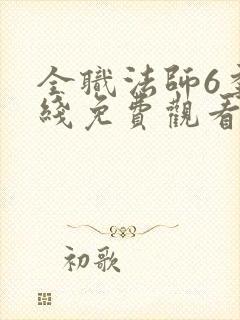 全職法師6
綫免費觀看
初歌